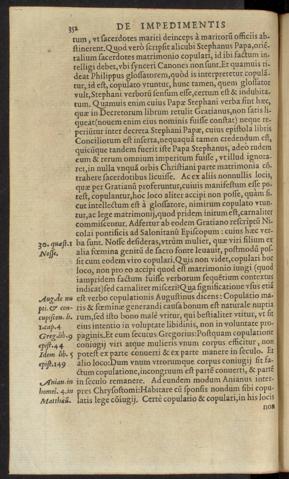 352
DE IMPEDIMENTIS
tum, vt sacerdotes mariti deinceps à maritorū officiis ab-
stinerent. Quod verò scripsit alicubi Stephanus Papa, oriē-
talium sacerdotes matrimonio copulari, id ibi factum in-
telligi debet, vbi synceri Canones non sunt. Et quamuis ri-
deat Philippus glossatorem, quòd is interpretetur copulā-
tur, id est, copulato vtuntur, hunc tamen, quem glossator
vult, Stephani verborū sensum esse, certum est & indubita-
tum. Quamuis enim cuius Papæ Stephani verba sint hæc,
quæ in Decretorum librum retulit Gratianus, non satis li-
queat (nouem enim eius nominis fuisse constat) neque re-
periūtur inter decreta Stephani Papæ, cuius epistola libris
Conciliorum est inserta, nequaquā tamen credendum est,
quicūque tandem fuerit iste Papa Stephanus, adeò rudem
eum & rerum omnium imperitum fuisse, vt illud ignora-
ret, in nulla vnquā orbis Christiani parte matrimonia cō-
trahere sacerdotibus licuisse. Ac ex aliis nonnullis locis,
quæ per Gratianū proferuntur, cuiuis manifestum esse po-
test, copulantur, hoc loco aliter accipi non posse, quàm si-
cut intellectum est à glossatore, nimirum copulato vtun-
tur, ac lege matrimonij, quod pridem initum est, carnaliter
commiscentur. Adfertur ab eodem Gratiano rescriptū Ni-
colai pontificis ad Salonitanū Episcopum: cuius hæc ver-
30. quæst. 1
Nosse.
ba sunt. Nosse desideras, vtrùm mulier, quæ viri filium ex
alia fœmina geniti de sacro fonte leauit, postmodū pos-
sit cum eodem viro copulari. Quis non videt, copulari hoc
loco, non pro eo accipi quod est matrimonio iungi (quod
iampridem factum fuisse verborum sequētium contextus
indicat) sed carnaliter misceri? Qua significatione vsus etiā
Aug. de nu
pt. & con-
cupiscen. li.
1. cap. 4
est verbo copulationis Augustinus dicens: Copulatio ma-
ris & fœminæ generandi causa bonum est naturale nuptia
rum, sed isto bono malè vtitur, qui bestialiter vtitur, vt sit
eius intentio in voluptate libidinis, non in voluntate pro-
Greg. lib. 9
epist. 44
Idem lib. 5
epist. 149
paginis. Et cum securus Gregorius: Postquam copulatione
coniugij viri atque mulieris vnum corpus efficitur, non
potest ex parte conuerti & ex parte manere in sæculo. Et
alio loco: Dum vnum vtrorumque corpus coniugij sit fa-
ctum copulatione, incongruum est partē conuerti, & partē
Anian. in
homel. 4. in
Matthæū.
in seculo remanere. Ad eundem modum Anianus inter-
pres Chrysostomi: Habitare cū sponsis nondum sibi copu-
latis lege cōiugij. Certè copulatio & copulari, in his locis
non